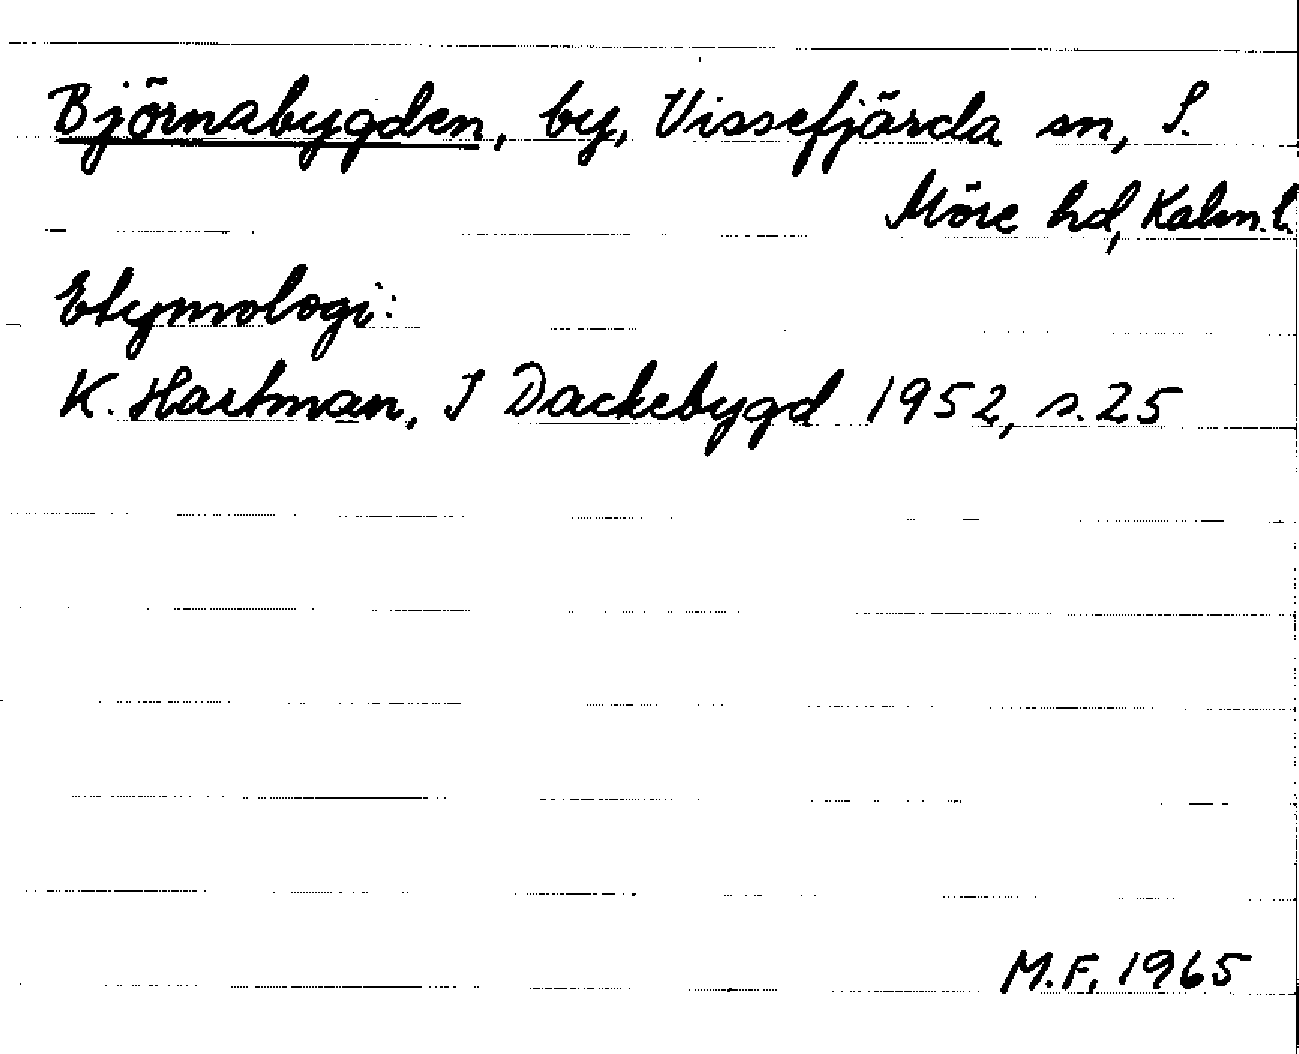 Björnabygden, by, Vissefjärda sn, S.
Möre hd, Kalm. l.
Etymologi:
K. Hartman, I Dackebygd 1952, s. 25
M.F. 1965